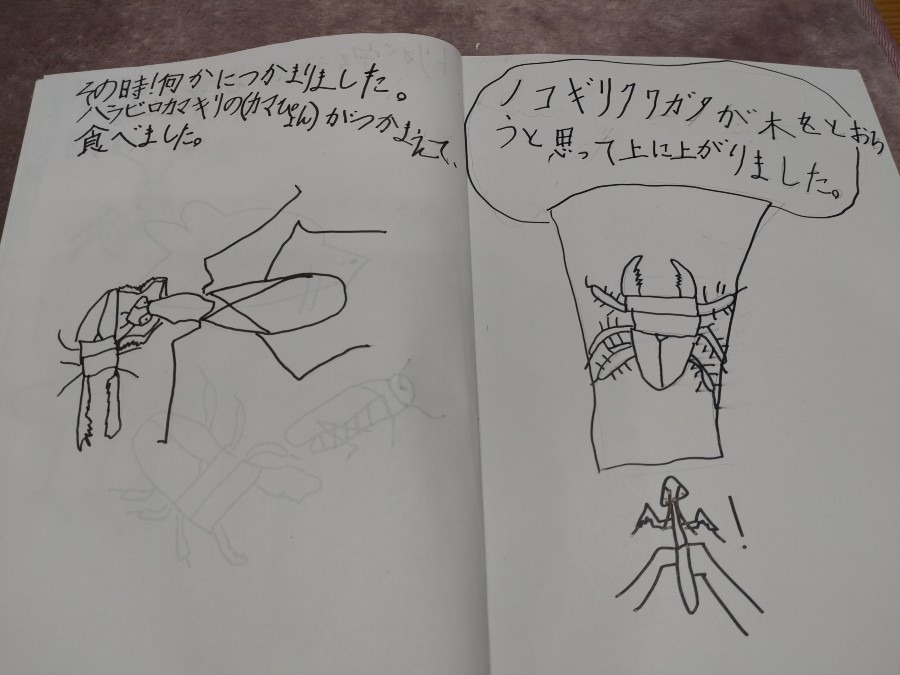 その時!何かにつかまりました。
ハラビロカマキリの(カマぴょん)がつかまえて、
食べました。
ノコギリクワガタが木をとおろ
うと思って上に上がりました。
!